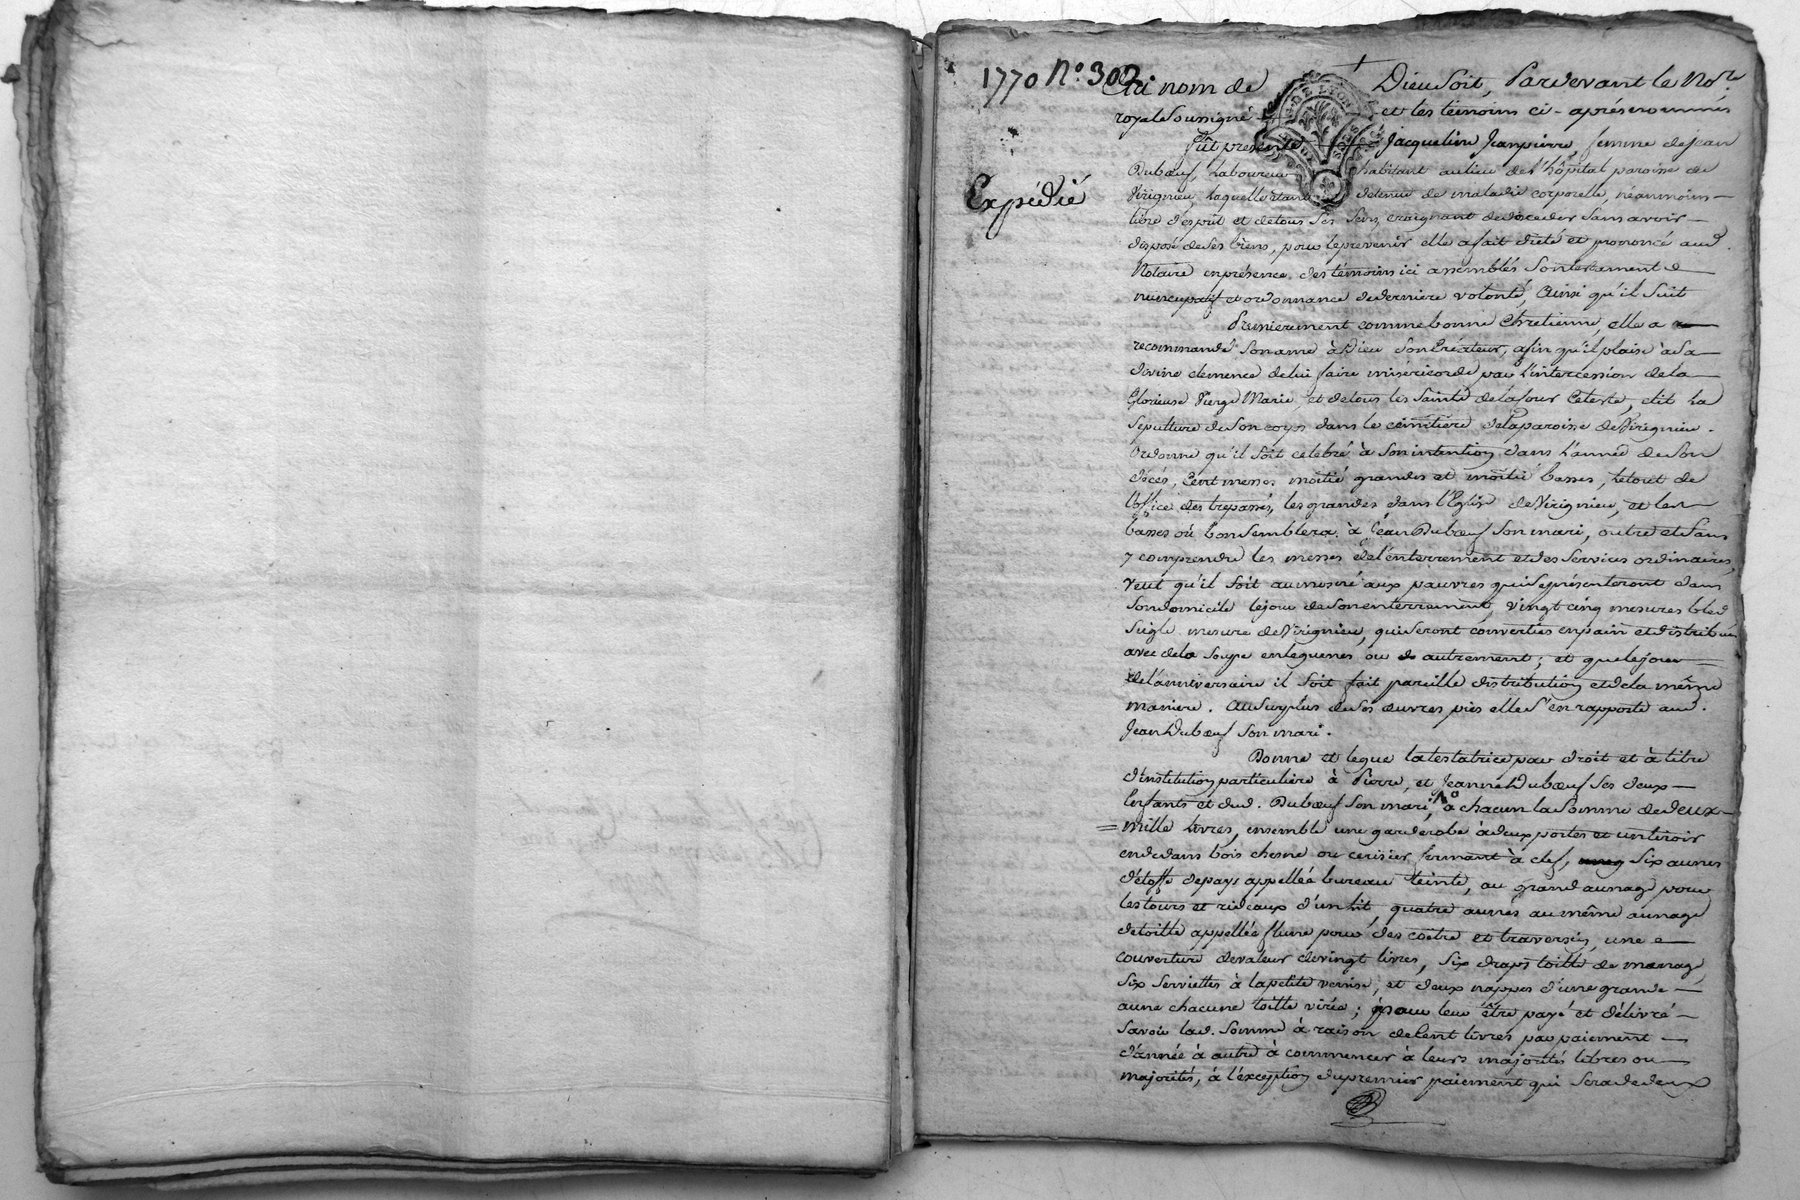 1770 N.° 302
Au nom de Dieu soit, Pardevant le No.re
royal soussigné et les témoins ci-après nommés
fût presente Jacqueline Jeanpierre, femme de jean
Dubœuf, Laboureur habitant au lieu de l'hôpital paroisse de
Virignieu, Laquelle étant détenue de maladie corporelle, néanmoins
libre d'esprit et de tous ses sens, craignant de décéder sans avoir
disposé de ses biens, pour le prevenir elle a fait dicté et prononcé aud.
Expédié
Notaire en présence des témoins ici assemblés son testament
nuncupatif et ordonnance de derniere volonté, Ainsi qu'il suit
Premierement comme bonne Chretienne, elle a
recommandé son ame à Dieu son Créateur, afin qu'il plaise à sa
divine clemence de lui faire misericorde par l'intercession de la
Glorieuse Vierge Marie, et de tous les Saints de la Cour Celeste, élit la
sepulture de son corps dans le cimitiere de la paroisse de Virignieu.
Ordonne qu'il soit celebré à son intention dans l'année de son
décés, Cent messes moitié grandes et moitié basses, le tout de
l'office des trepassés, les grandes dans l'Eglise de Virignieu, et les
basses où bon semblera à Jean Dubœuf son mari, outre et sans
y comprendre les messes de l'enterrement et des services ordinaires,
Veut qu'il soit aumosné aux pauvres qui se présenteront dans
son domicile le jour de son enterrement, vingt cinq mesures bled
seigle mesure de Virignieu, qui seront converties en pain et distribuées
avec de la soupe en legumes ou autrement; et que le jour
de l'anniversaire il soit fait pareille distribution et de la même
maniere. Au surplus de ses œuvres pies elle s'en rapporte aud.
Jean Dubœuf son mari.
Donne et legue la testatrice par droit et à titre
d'institution particuliere à Pierre, et Jeanne Dubœuf ses deux
Enfants et dud. Dubœuf son mari, à chacun la somme de deux
mille livres, ensemble une garderobe à deux portes et un tiroir
en dedans bois chesne ou cerisier fermant à clef, six aunes
d'étoffe de pays appellée bureau teinte, au grand aunage pour
les tours et rideaux d'un lit, quatre aunes au même aunage
de toille appellée flune pour des coëtre et traversin, une
couverture de valeur de vingt livres, six draps toille de menage
six serviettes à la petite venise, et deux nappes d'une grande
aune chacune toille virée; pour leur être payé et délivré
savoir lad. somme à raison de Cent livres par paiement
d'année à autre à commencer à leurs majorités libres ou
majorités, à l'exception du premier paiement qui sera de deux